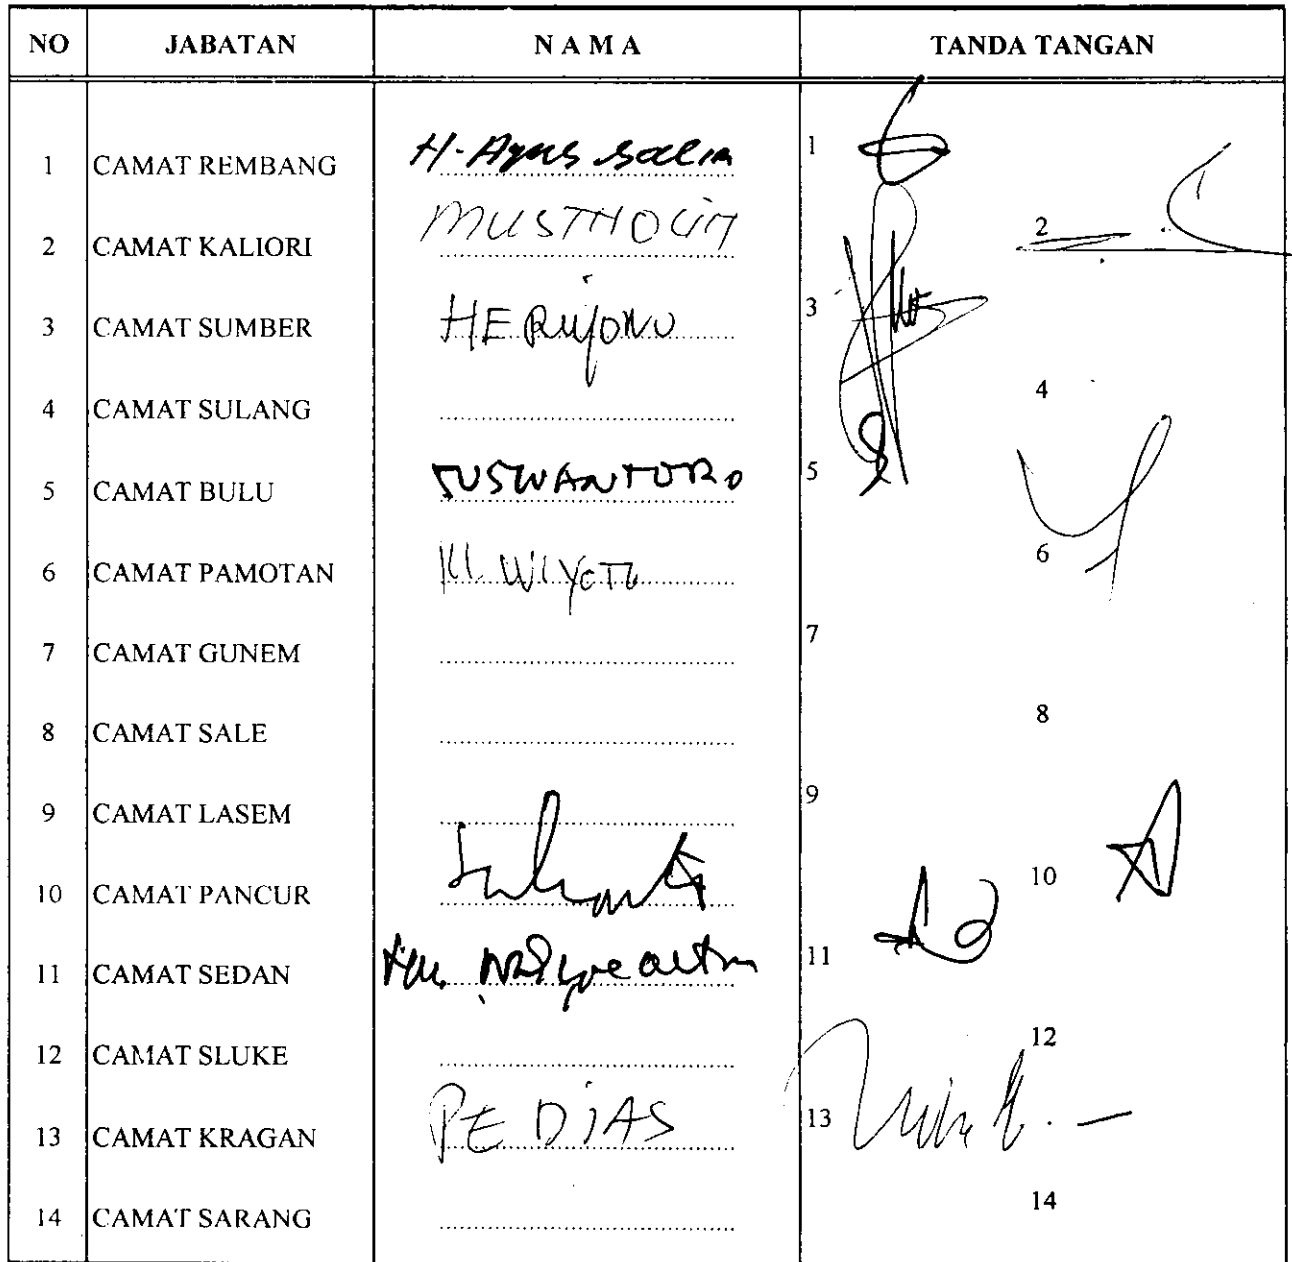 NO JABATAN N A M A TANDA TANGAN
1 CAMAT REMBANG H. Agus Salim 1
2 CAMAT KALIORI MUSTHOLIH 2
3 CAMAT SUMBER HERIYONO 3
4 CAMAT SULANG 4
5 CAMAT BULU SUSWANTORO 5
6 CAMAT PAMOTAN 6
7 CAMAT GUNEM 7
8 CAMAT SALE 8
9 CAMAT LASEM 9
10 CAMAT PANCUR 10
11 CAMAT SEDAN 11
12 CAMAT SLUKE 12
13 CAMAT KRAGAN PE DIAS 13
14 CAMAT SARANG 14